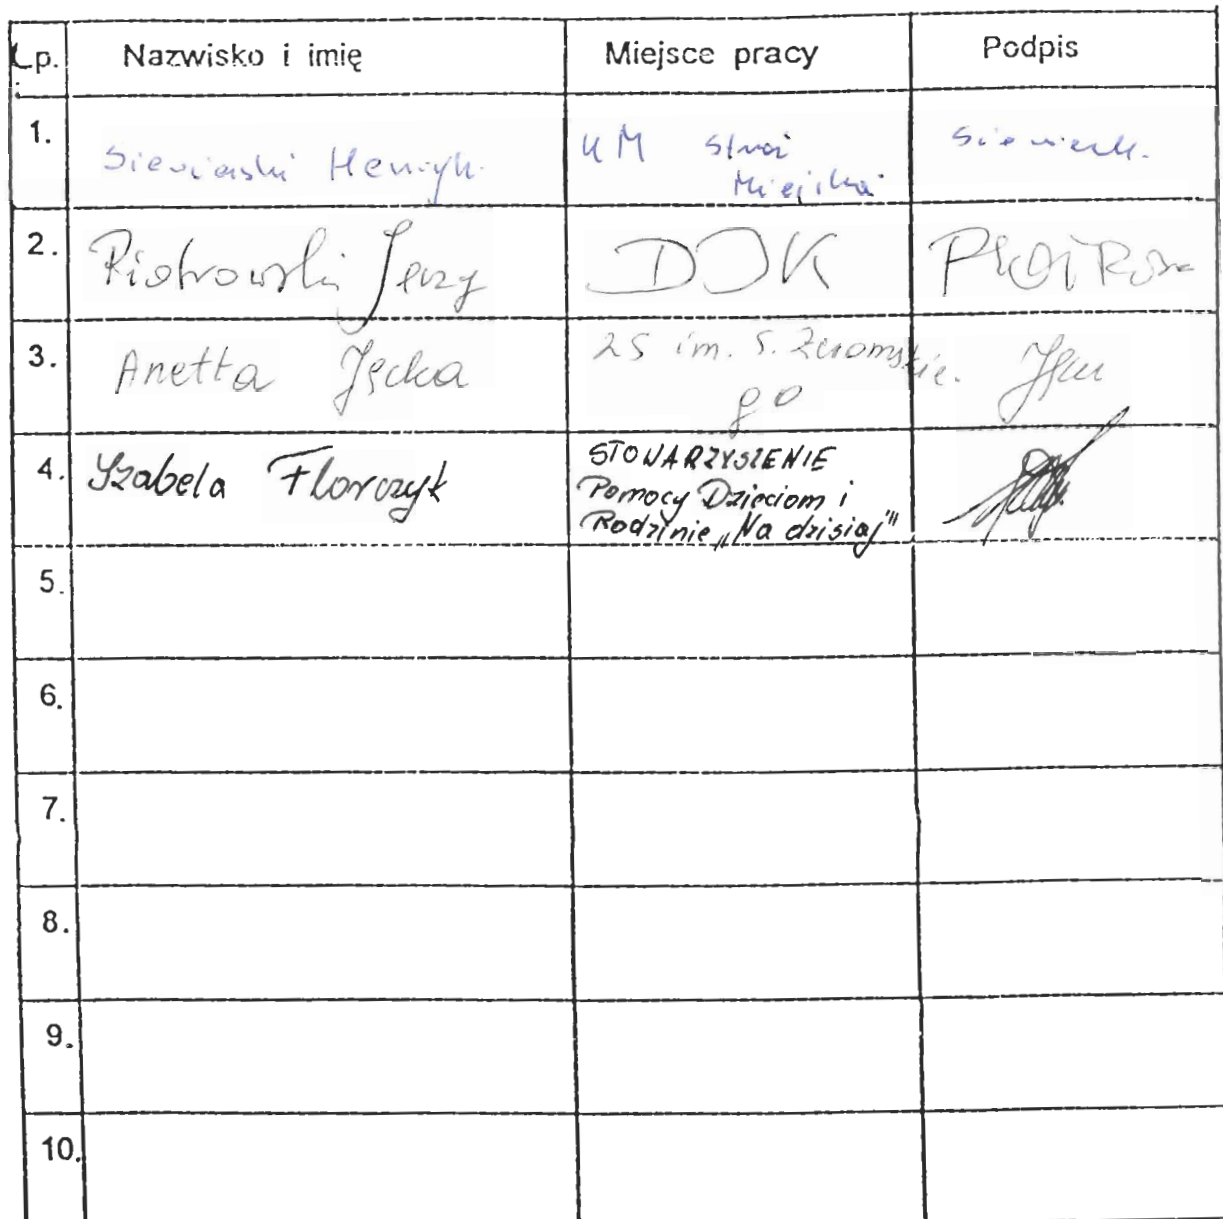 Lp. Nazwisko i imię Miejsce pracy Podpis
1. Sieviaski Henryk. UM Straż
Miejska
2. Piotrowski Jerzy DDK Piotrow
3. Anetta Jęcka ZS im. S. Żeromskie.
go
4. Izabela Florczyk STOWARZYSZENIE
Pomocy Dzieciom i
Rodzinie „Na dzisiaj"
5.
6.
7.
8.
9.
10.